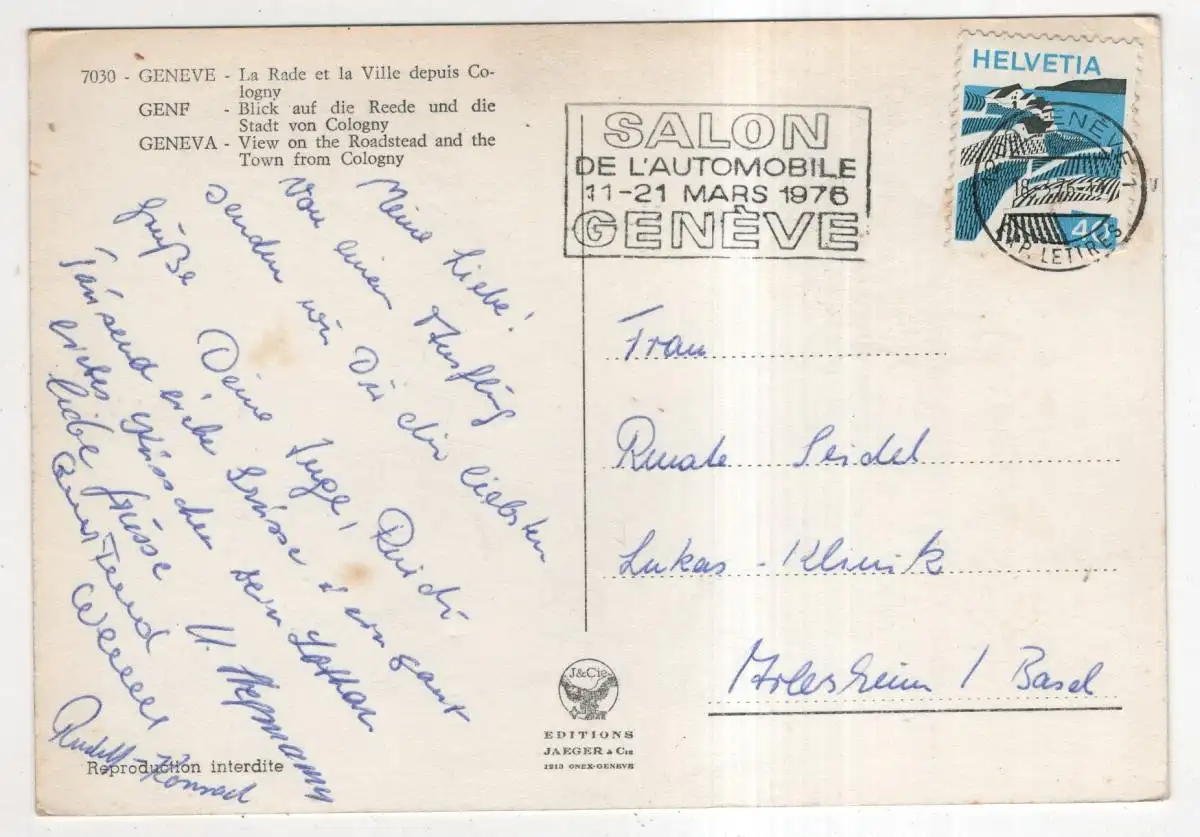 7030 - GENEVE - La Rade et la Ville depuis Co-
logny
GENF - Blick auf die Reede und die
Stadt von Cologny
GENEVA - View on the Roadstead and the
Town from Cologny
SALON
DE L'AUTOMOBILE
11-21 MARS 1976
GENÈVE
HELVETIA
40
GENÈVE 1
LETTRES
Meine Liebe!
Von einem Ausflug
senden wir Dir die liebsten
Grüße
Deine Inge,
Tausend liebe Grüsse & ein ganz
liebes Grüsschen Dein Lothar
liebe Grüsse
Konrad
Frau
Renate Seidel
Lukas-Klinik
Arlesheim / Basel
J&Cie
EDITIONS
JAEGER & Cie
1213 ONEX-GENEVE
Reproduction interdite